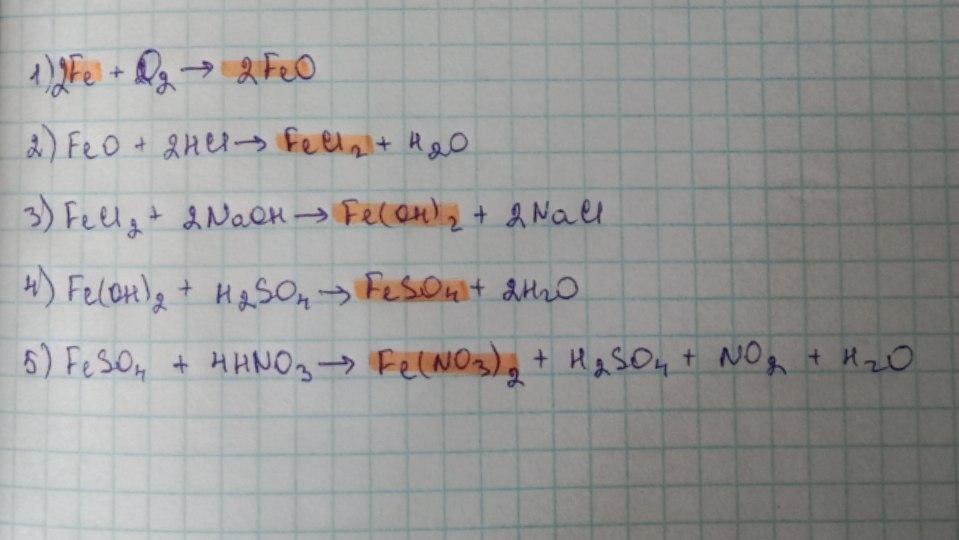 1) 2Fe + O₂ → 2FeO
2) FeO + 2HCl → FeCl₂ + H₂O
3) FeCl₂ + 2NaOH → Fe(OH)₂ + 2NaCl
4) Fe(OH)₂ + H₂SO₄ → FeSO₄ + 2H₂O
5) FeSO₄ + 4HNO₃ → Fe(NO₃)₂ + H₂SO₄ + NO₂ + H₂O